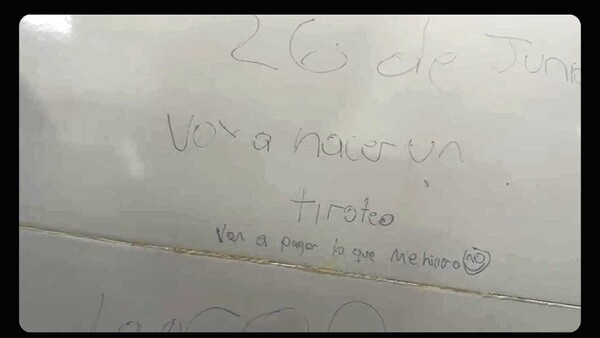 26 de Juni
Voy a hacer un
tiroteo
Van a pagar lo que me hiciero
no